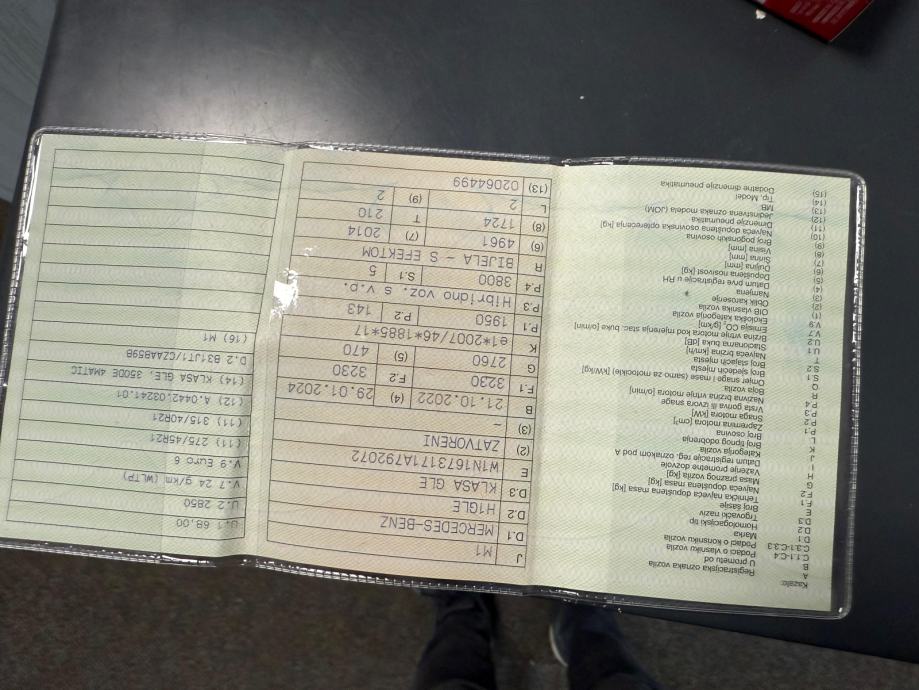 Kazalo:
A Registracijska oznaka vozila
B U prometu od
C.1.1-C.4 Podaci o vlasniku vozila
C.3.1-C.3.3 Podaci o korisniku vozila
D.1 Marka
D.2 Homologacijski tip
D.3 Trgovački naziv
E Broj šasije
F.1 Tehnička najveća dopuštena masa [kg]
F.2 Najveća dopuštena masa [kg]
G Masa praznog vozila [kg]
H Važenje prometne dozvole
I Datum registracije reg. oznakom pod A
J Kategorija vozila
K Broj tipnog odobrenja
L Broj osovina
P.1 Zapremina motora [cm³]
P.2 Snaga motora [kW]
P.3 Vrsta goriva ili izvora snage
P.4 Nazivna brzina vrtnje motora [o/min]
R Boja vozila
Q Omjer snaga / masa (samo za motocikle) [kW/kg]
S.1 Broj sjedećih mjesta
S.2 Broj stajaćih mjesta
T Najveća brzina [km/h]
U.1 Stacionarna buka [dB]
U.2 Brzina vrtnje motora kod mjerenja stac. buke [o/min]
V.7 Emisija CO₂ [g/km]
V.9 Ekološka kategorija vozila
(1) OIB vlasnika vozila
(2) Oblik karoserije
(3) Namjena
(4) Datum prve registracije u RH
(5) Dopuštena nosivost [kg]
(6) Duljina [mm]
(7) Širina [mm]
(8) Visina [mm]
(9) Broj pogonskih osovina
(10) Najveća dopuštena osovinska opterećenja [kg]
(11) Dimenzije pneumatika
(12) Jedinstvena oznaka modela (JOM)
(13) MB
(14) Tip, Model
(15) Dodatne dimenzije pneumatika
J M1
D.1 MERCEDES-BENZ
D.2 H1GLE
D.3 KLASA GLE
E W1N1673171A792072
(2) ZATVORENI
(3) -
B 21.10.2022 (4) 29.01.2024
F.1 3230 F.2 3230
G 2760 (5) 470
K e1*2007/46*1885*17
P.1 1950 P.2 143
P.3 Hibridno voz. s V.D.
P.4 3800 S.1 5
R BIJELA - S EFEKTOM
(6) 4961 (7) 2014
(8) 1724 T 210
L 2 (9) 2
(13) 02064499
U.1 68,00
U.2 2850
V.7 24 g/km (WLTP)
V.9 Euro 6
(11) 275/45R21
(11) 315/40R21
(12) A.0442.03241.01
(14) KLASA GLE, 350DE 4MATIC
D.2 B31JT1/CZAAB59B
(16) M1